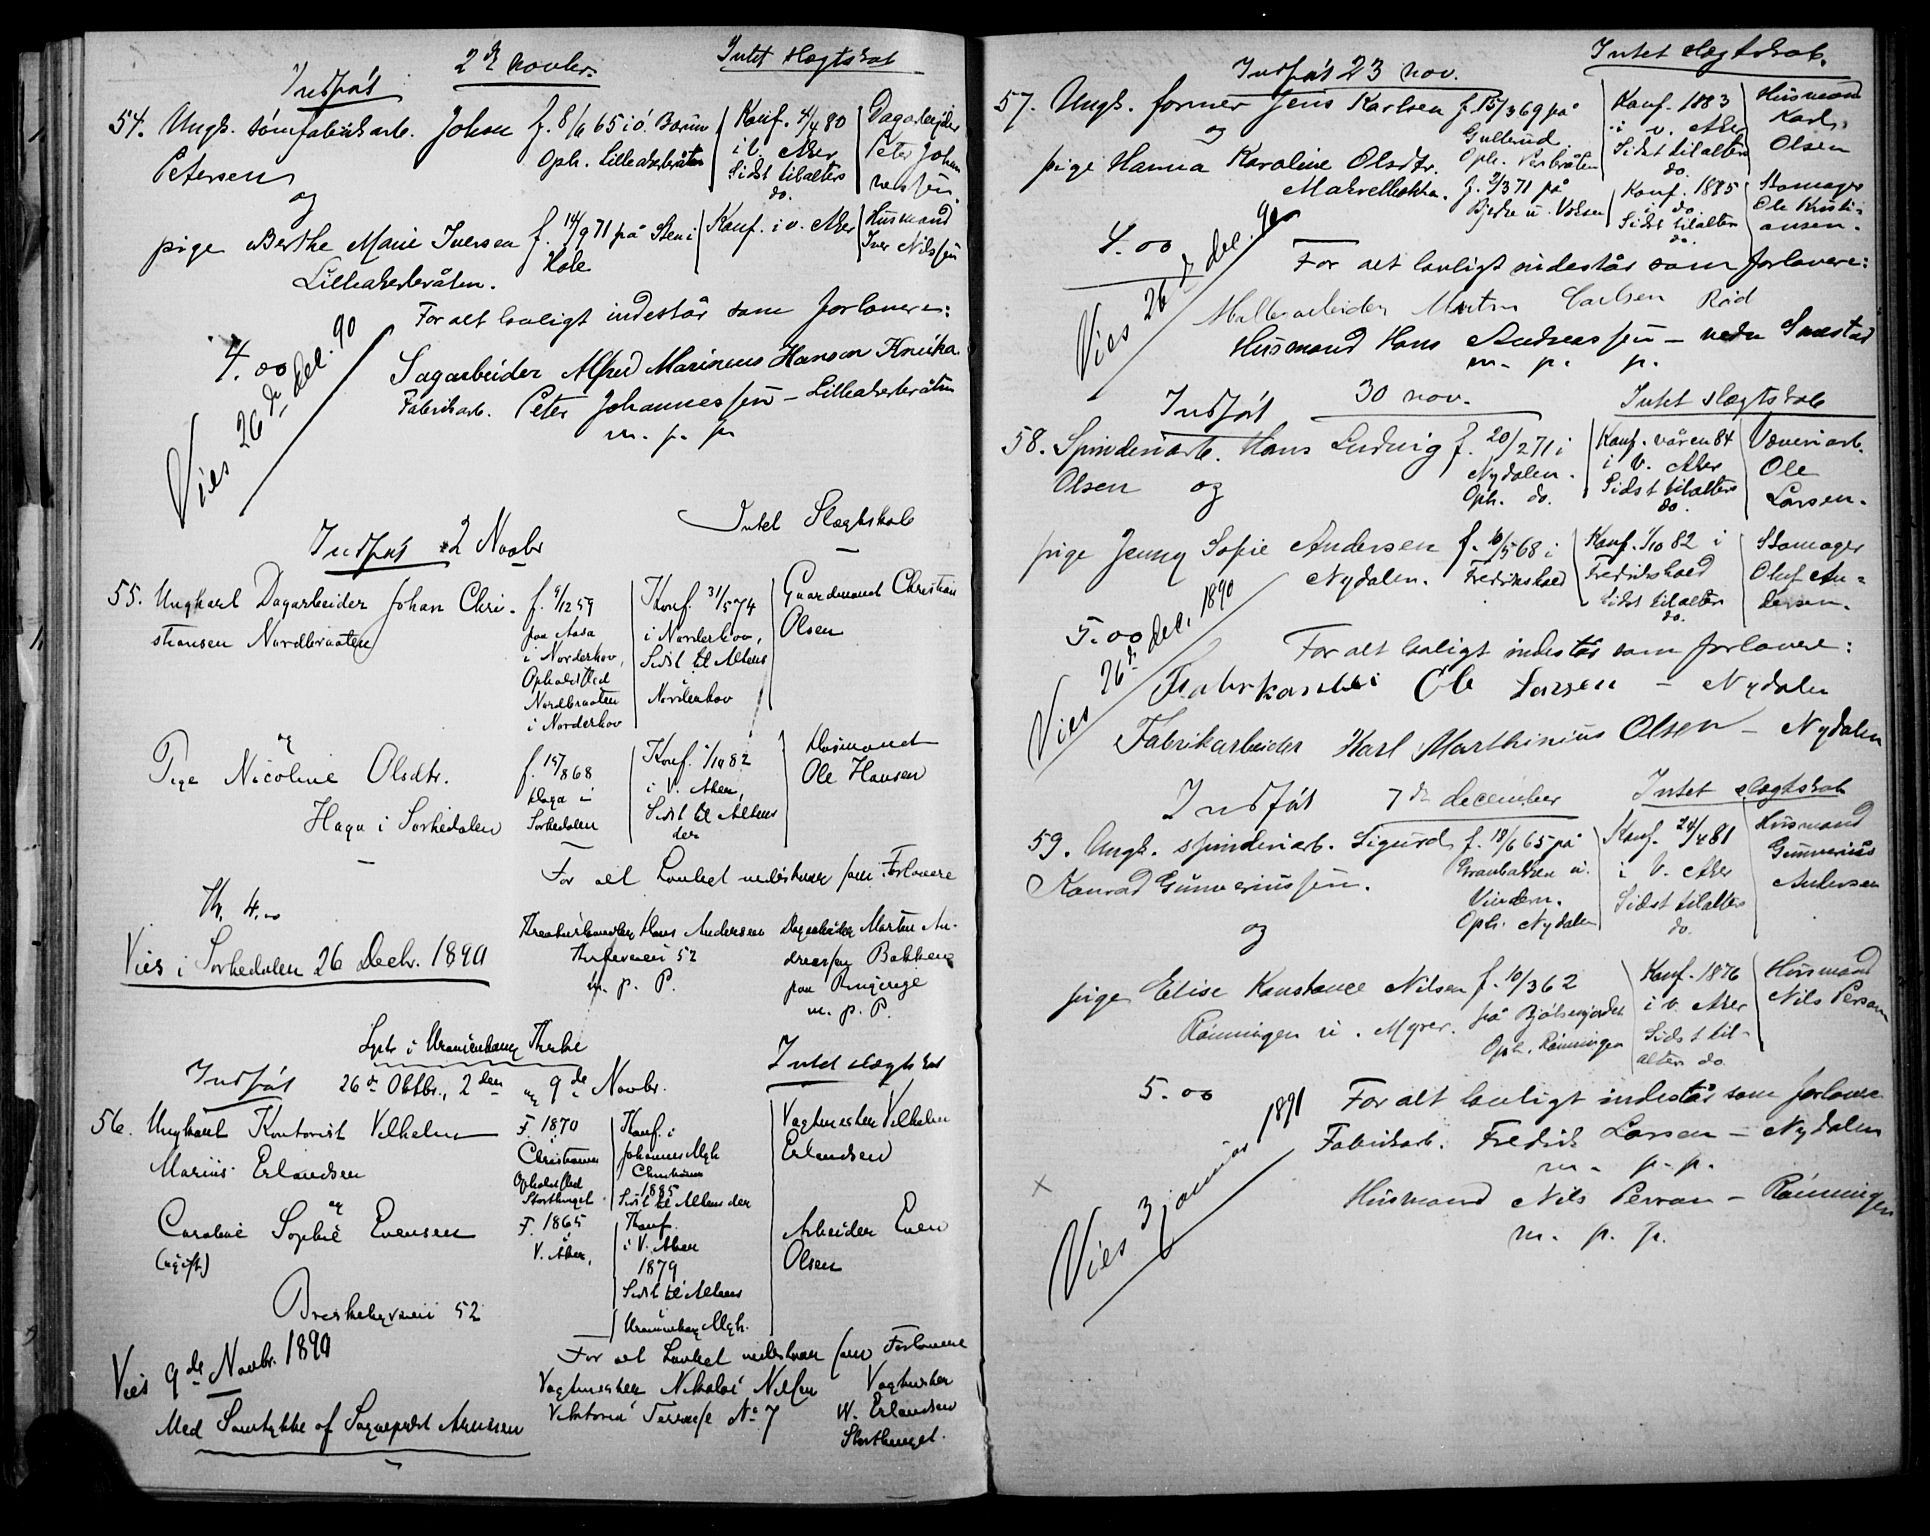 2den novbr.
Intet slægtskab
Indført
54. Ungk. sömfabrikarb. Johan
Petersen
og
f. 8/6 65 i ö. Bærum
Oph. Lilleakerbråten
Konf. 4/4 80
i V. Aker
Sidst tilalters
do.
Dagarbeider
Peter Johan
nessen
pige Berthe Marie Iversen
Lilleakerbråten.
f. 14/9 71 på Sten i
Hole
Konf. i v. Aker
Husmand
Iver Nilssen
For alt lovligt indestår som forlovere:
4.00
Sagarbeider Alfred Marinius Hansen
Fabrikarb. Peter Johannessen – Lilleakerbråten
m. p. p.
Vies 26de dec. 90
Intet Slægtskab
Indført 2 Novbr
55. Ungkarl Dagarbeider Johan Chri-
stiansen Nordbraaten
f. 9/12 59
paa Aasa
i Norderhov,
Opholdsted
Nordbraaten
i Norderhov
Konf. 31/5 74
i Norderhov,
Sidst til Alters
Norderhov
Gaardmand Christian
Olsen
og
Pige Nicoline Olsdtr.
Haga i Sørkedalen
f. 15/8 68
Haga i
Sørkedalen
Konf. 1/10 82
i V. Aker,
Sidst til Alters
der
Husmand
Ole Hansen
For alt Lovligt indestaaer som Forlovere
4.00
Kreaturhandler Hans Andersen
52
m. p. P.
Dagarbeider Martin An-
dreassen Bakken
paa Ringerige
m. p. P.
Vies i Sørkedalen 26 Decbr. 1890
Lyst i Uranienborg Kirke
Indført 26de Oktbr., 2den og 9de Novbr.
Intet slægtskab
56. Ungkarl Kontorist Vilhelm
Marius Erlandsen
og
F. 1870
Christiania
Opholdsted
Storthinget
Konf. i
Johannes Mgh.
Christiania
1885
Sidst til Alters der
Vagtmester Vilhelm
Erlandsen
Caroline Sophie Evensen
(ugift)
Briskebyveien 52
F. 1865
V. Aker,
Konf.
i V. Aker
1879
Sidst til Alters
Uranienborg Mgh.
Arbeider Even
Olsen
For alt Lovligt indestaaer som Forlovere
Vies 9de Novbr. 1890
Vagtmester Nikolai Nilsen
Viktoria Terrasse No 7
Vagtmester
W. Erlandsen
Storthinget.
Med Samtykke af Sogneprest
Indført 23 nov.
Intet slægtskab.
57. Ungk. former Jens Karlsen
og
f. 15/3 69 på
Gullerud
Oph.
Konf. 1883
i v. Aker
Sidst til alters
do.
Husmand
Karl
Olsen
pige Hanna Karoline Olsdtr.
Makrellbekken.
f. 2/3 71 på
Bjerke u. Voksen
Konf. 1885
i do.
Sidst til alters
do.
Skomager
Ole Kristi-
ansen.
4.00
Vies 26de dec. 90
For alt lovligt indestår som forlovere:
Möllearbeider Martin Carlsen Röd
Husmand Hans Andreassen – nedre Smestad
m. p. p.
Indført
30 nov.
Intet slægtskab
58. Spinderiarb. Hans Ludvig
Olsen og
f. 20/2 71 i
Nydalen.
Oph. do.
Konf. våren 84
i V. Aker
Sidst tilalters
do.
Væveriarb.
Ole
Larsen.
pige Jenny Sofie Andersen
Nydalen.
f. 10/5 68 i
Fredrikshald
Konf. 1/10 82 i
Fredrikshald
Sidst tilalters
do.
Skomager
Oluf An-
dersen.
5.00
Vies 26de dec. 1890
For alt lovligt indestår som forlovere:
Ole Larsen – Nydalen
Fabrikarbeider Karl Marthinius Olsen – Nydalen
Indført
7de december
Intet slægtskab
59. Ungk. spinderiarb. Sigurd
Konrad Gunneriussen.
og
f. 18/6 65 på
Granbakken u.
Vindern.
Oph. Nydalen
Konf. 24/4 81
i V. Aker
Sidst tilalters
do.
Husmand
Gunnerius
Andersen
pige Elise Konstance Nilsen
Rönningen u. Myrer.
f. 10/3 62
på Bjölsenjordet
Oph. Rönningen
Konf. 1876
i v. Aker
Sidst til-
alters do.
Husmand
Nils Person
5.00
For alt lovligt indestår som forlovere
Fabrikarb. Fredrik Larsen – Nydalen
m. p. p.
Husmand Nils Person – Rönningen
m. p. p.
x
Vies 3 januar 1891